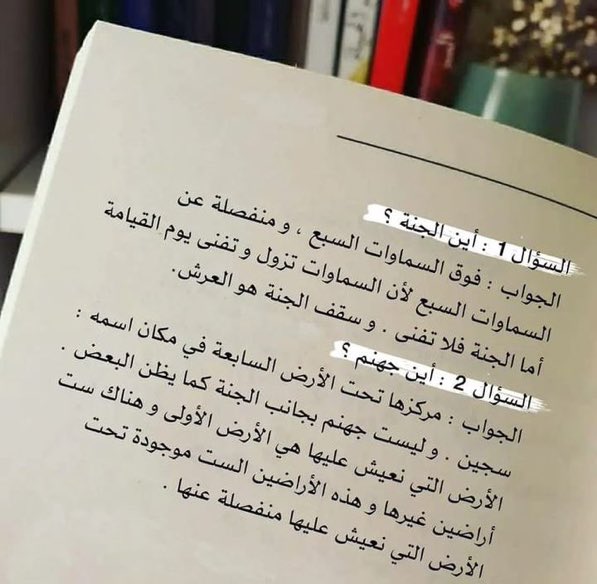 السؤال 1 : أين الجنة ؟
الجواب : فوق السماوات السبع ، و منفصلة عن
السماوات السبع لأن السماوات تزول و تفنى يوم القيامة
أما الجنة فلا تفنى . و سقف الجنة هو العرش.
السؤال 2 : أين جهنم ؟
الجواب : مركزها تحت الأرض السابعة في مكان اسمه :
سجين . و ليست جهنم بجانب الجنة كما يظن البعض .
الأرض التي نعيش عليها هي الأرض الأولى و هناك ست
أراضين غيرها و هذه الأراضين الست موجودة تحت
الأرض التي نعيش عليها منفصلة عنها .